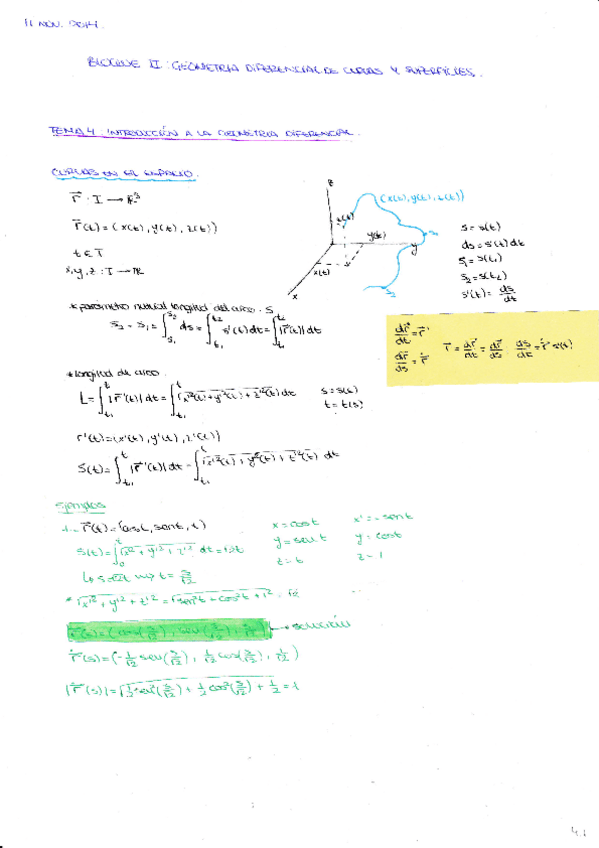 11 NOV. 2014.
BLOQUE II: GEOMETRIA DIFERENCIAL DE CURVAS Y SUPERFICIES.
TEMA 4. INTRODUCCIÓN A LA GEOMETRIA DIFERENCIAL.
CURVAS EN EL ESPACIO.
r⃗ : I → ℝ³
r⃗(t) = (x(t), y(t), z(t))
t ∈ I
x, y, z : I → ℝ
z
(x(t), y(t), z(t))
z(t)
y(t)
y
x(t)
x
s₂
s = s(t)
ds = s'(t) dt
s₁ = s(t₁)
s₂ = s(t₂)
s'(t) = ds/dt
* parámetro natural longitud del arco. S
s₂ - s₁ = ∫_{s₁}^{s₂} ds = ∫_{t₁}^{t₂} s'(t) dt = ∫_{t₁}^{t₂} |r⃗'(t)| dt
dr⃗/dt = r⃗'
dr⃗/ds = ṙ⃗
r⃗' = dr⃗/dt = dr⃗/ds · ds/dt = ṙ⃗ · s'(t)
* longitud del arco.
L = ∫_{t₁}^{t₂} |r⃗'(t)| dt = ∫_{t₁}^{t₂} √(x'²(t) + y'²(t) + z'²(t)) dt
s = s(t)
t = t(s)
r'(t) = (x'(t), y'(t), z'(t))
s(t) = ∫_{t₁}^{t} |r⃗'(t)| dt = ∫_{t₁}^{t} √(x'²(t) + y'²(t) + z'²(t)) dt
Ejemplos
1.- r⃗(t) = (cos t, sen t, t)
x = cos t
x' = - sen t
y = sen t
y' = cos t
z = t
z' = 1
s(t) = ∫_{0}^{t} √(x'² + y'² + z'²) dt = √2 t
↳ s = √2 t ⇝ t = s/√2
* √(x'² + y'² + z'²) = √(sen²t + cos²t + 1²) = √2
r⃗(s) = (cos(s/√2), sen(s/√2), s/√2) → SOLUCIÓN
ṙ⃗(s) = (-1/√2 sen(s/√2), 1/√2 cos(s/√2), 1/√2)
|ṙ⃗(s)| = √(1/2 sen²(s/√2) + 1/2 cos²(s/√2) + 1/2) = 1
4.1